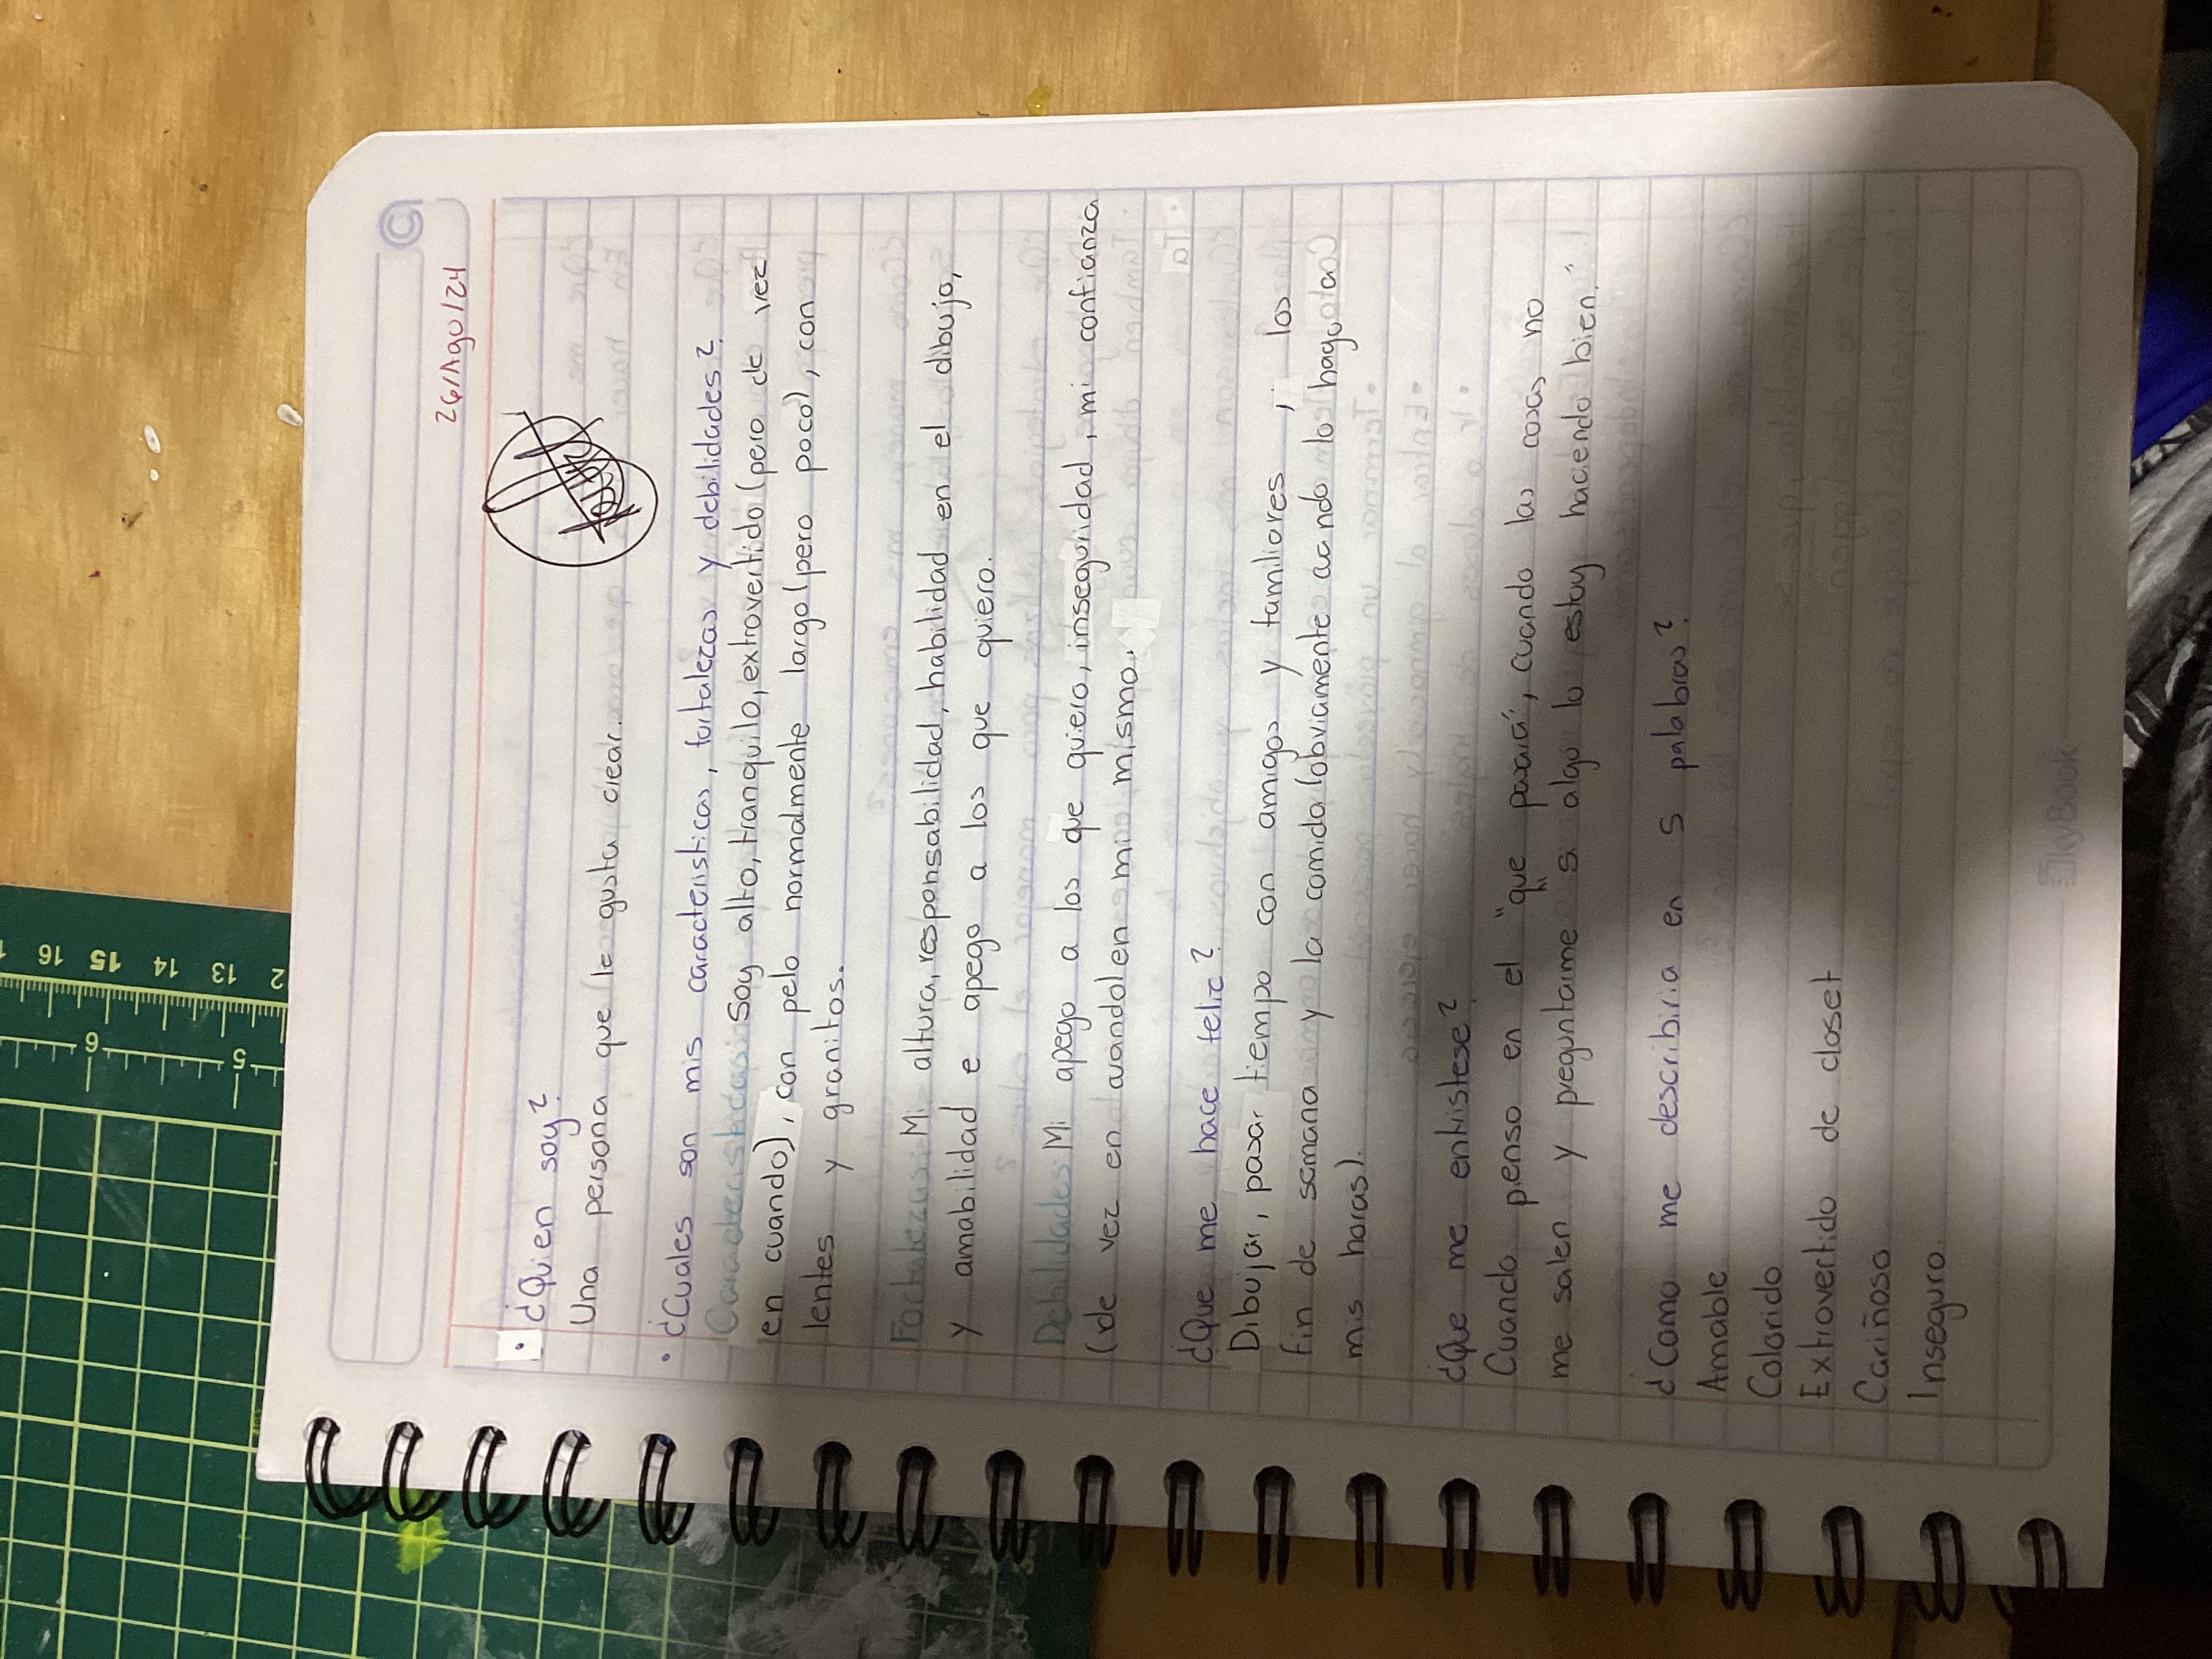 26/Ago/24
• ¿Quien soy?
Una persona que le gusta crear.
• ¿Cuales son mis caracteristicas, fortalezas y debilidades?
Caracteristicas: Soy alto, tranquilo, extrovertido (pero de vez
en cuando), con pelo normalmente largo (pero poco), con
lentes y granitos.
Fortalezas: Mi altura, responsabilidad, habilidad en el dibujo,
y amabilidad e apego a los que quiero.
Debilidades: Mi apego a los que quiero, inseguridad, mi confianza
(de vez en cuando) en mi mismo.
¿Que me hace feliz?
Dibujar, pasar tiempo con amigos y familiares, los
fin de semana y la comida (obviamente cuando lo hago a
mis horas).
¿Que me entristese?
Cuando penso en el "que pasará", cuando las cosas no
me salen y preguntarme "si algo lo estoy haciendo bien."
¿Como me describiria en 5 palabras?
Amable
Colorido
Extrovertido de closet
Cariñoso
Inseguro.
SkyBook
13 14 15 16
5 6